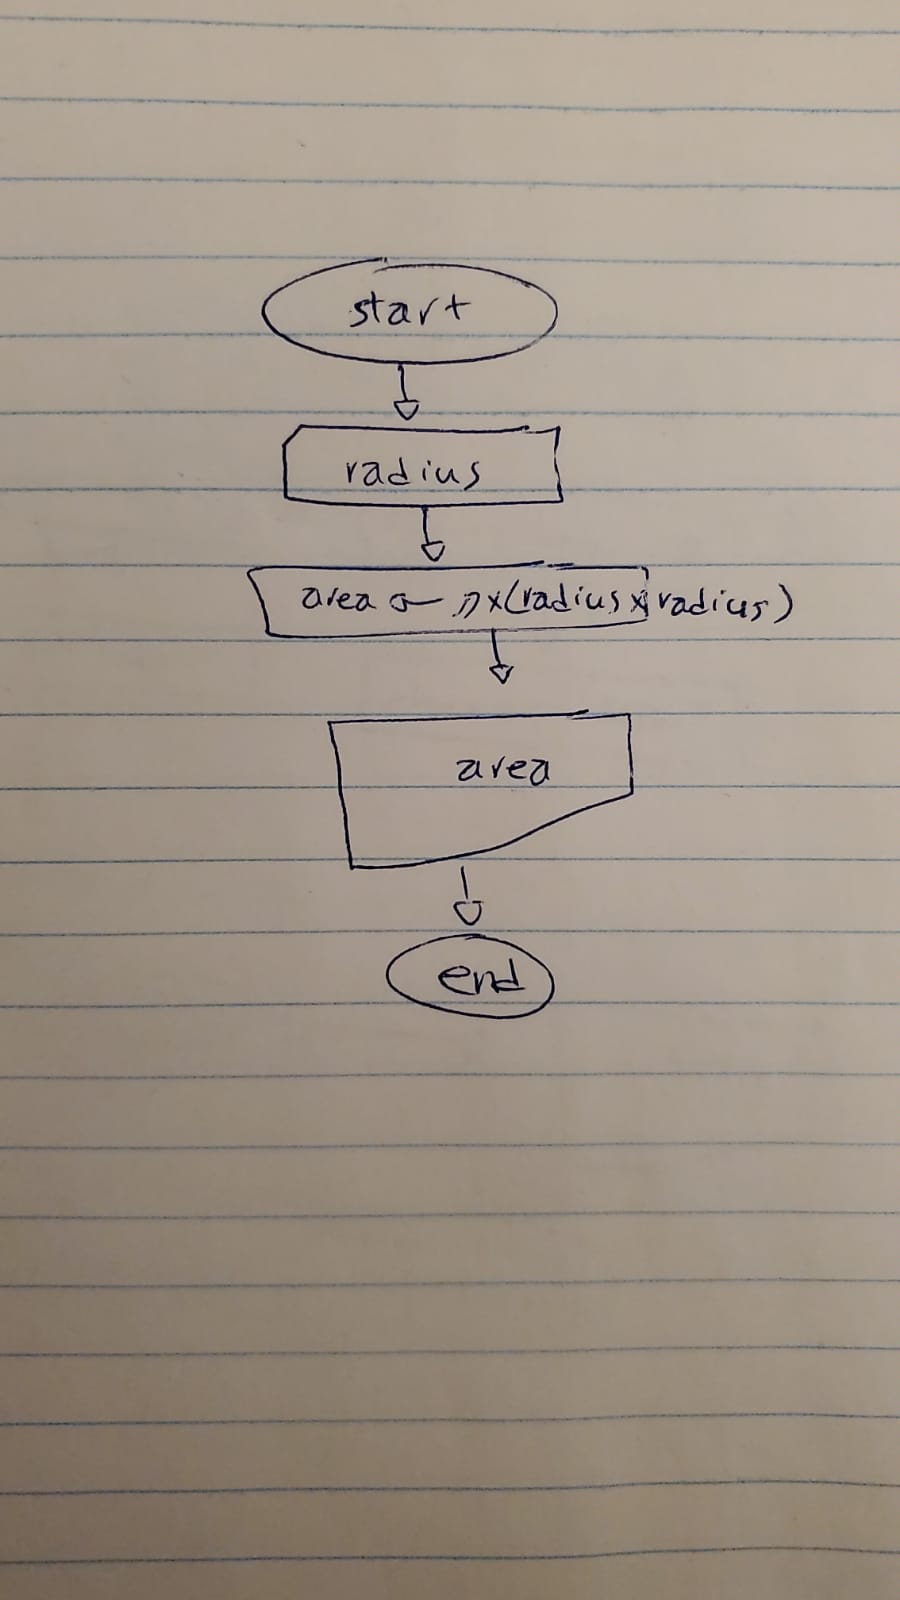 start
radius
area ← π x (radius x radius)
area
end